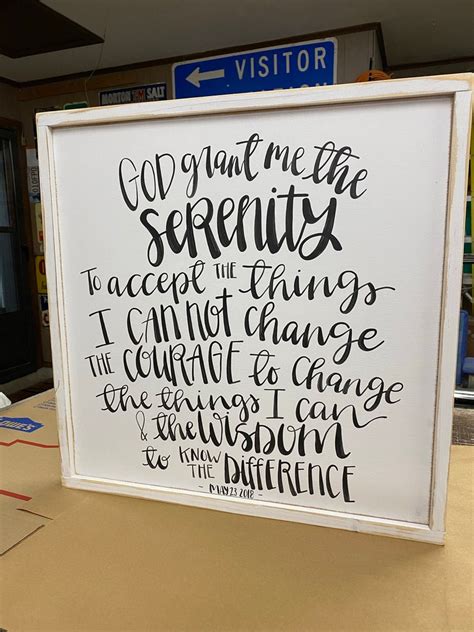 VISITOR
MORTON SALT
GOD grant me the
SERENITY
To accept THE things
I CAN NOT change
THE COURAGE to change
the things I can
& the WISDOM
to KNOW THE DIFFERENCE
- MAY 23 2018 -
LOWE'S